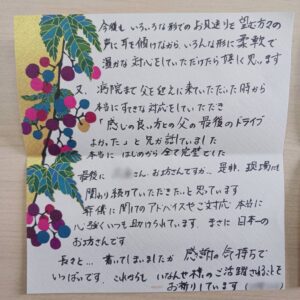 今後も いろいろな形でのお見送りを望む方々の
声に耳を傾けながら いろんな形に柔軟で
温かな対応をしていただけたら嬉しく思います
又、病院まで父を迎えに来ていただいた時から
本当にすてきな対応をしていただき
「感じの良い方との父の最後のドライブ
よかった」と兄が話していました
本当に はじめから全て完璧でした
最後に さん、お坊さんですが、是非、現場にも
関わり続けていただきたいと思っています
葬儀に関してのアドバイスやご対応、本当に
心強くいつも助けられています。まさに日本一の
お坊さんです
長々と… 書いてしまいましたが 感謝の気持ちで
いっぱいです。これからも いなんせ様のご活躍されることを
お祈りしています